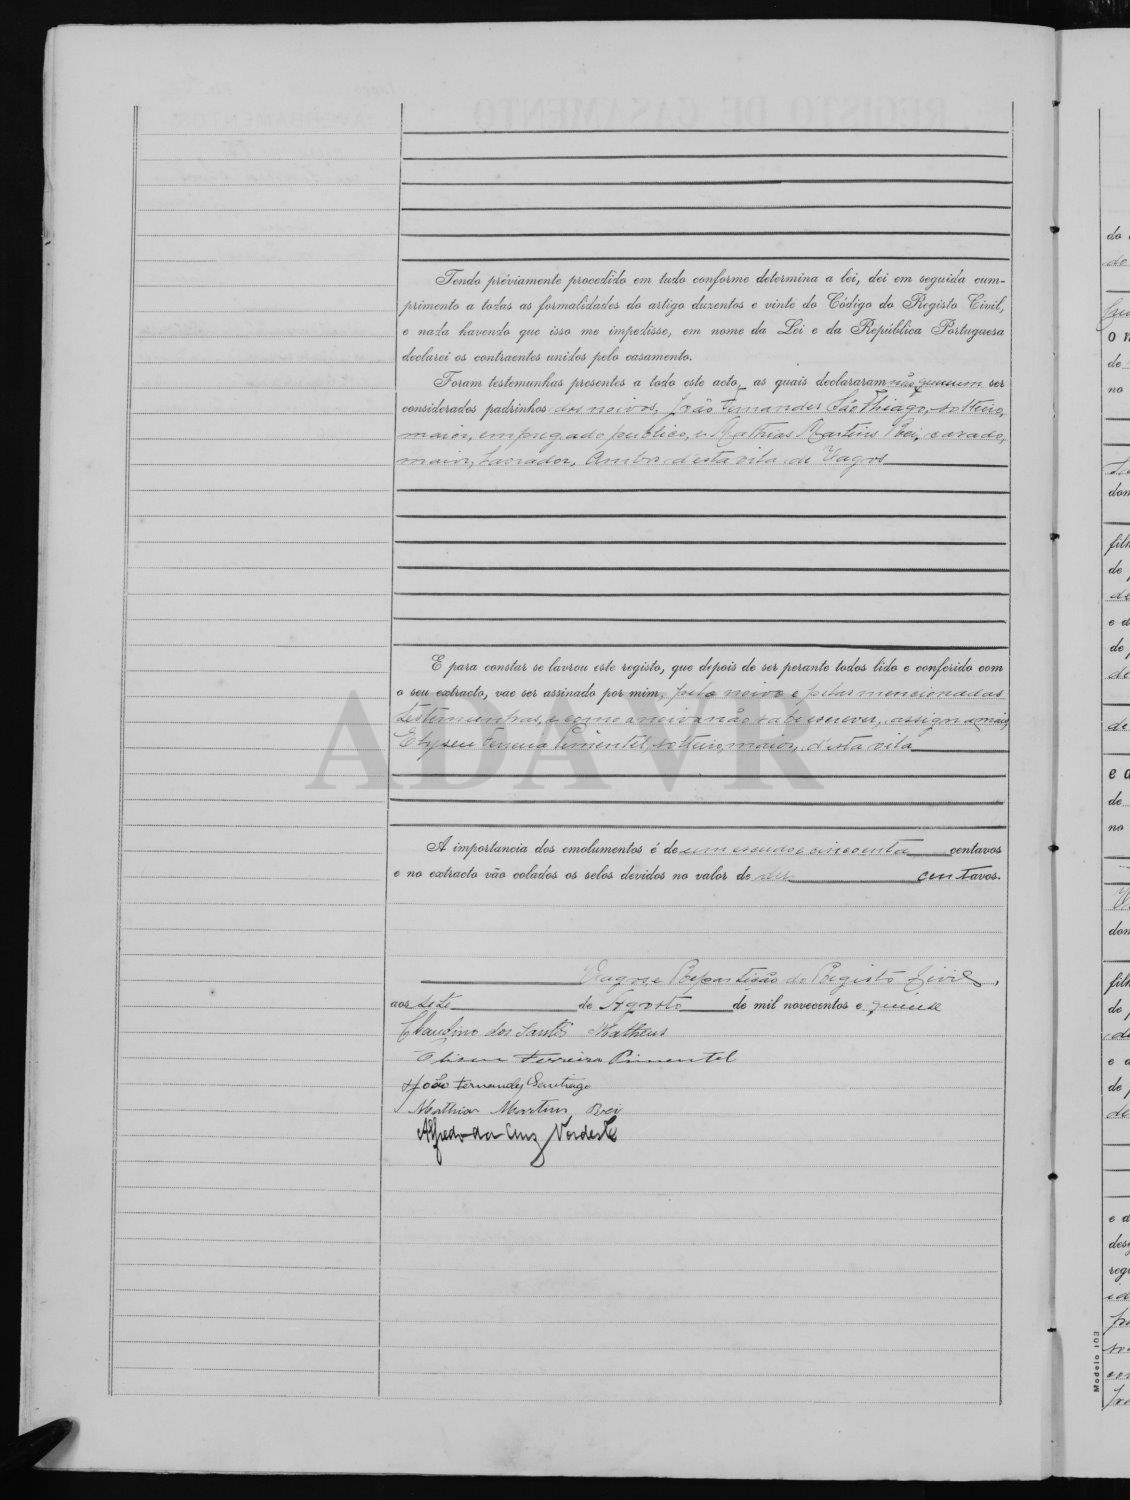 Tendo préviamente procedido em tudo conforme determina a lei, dei em seguida cum-
primento a todas as formalidades do artigo duzentos e vinte do Código do Registo Civil,
e nada havendo que isso me impedisse, em nome da Lei e da República Portuguesa
declarei os contraentes unidos pelo casamento.
Foram testemunhas presentes a todo este acto, as quais declararam não querem ser
considerados padrinhos dos noivos, João Fernandes São Thiago, solteiro,
maior, empregado publico, e Mathias Martins Rei, casado,
maior, lavrador, ambos d'esta vila de Vagos
E para constar se lavrou este registo, que depois de ser perante todos lido e conferido com
o seu extracto, vae ser assinado por mim, pelo noivo e pelas mencionadas
testemunhas, e como a noiva não sabe escrever, assigna mais
Elyseu Ferreira Pimentel, solteiro, maior, d'esta vila
ADAVR
A importancia dos emolumentos é de um escudo e cincoenta centavos
e no extracto vão colados os selos devidos no valor de dez centavos.
Vagos e Repartição do Registo Civil,
aos sete de Agosto de mil novecentos e quinze
Claudino dos Santos Matheus
Eliseu Ferreira Pimentel
João Fernandes Santiago
Mathias Martins Rei
Alfredo da Cruz Nordeste
Modelo 103